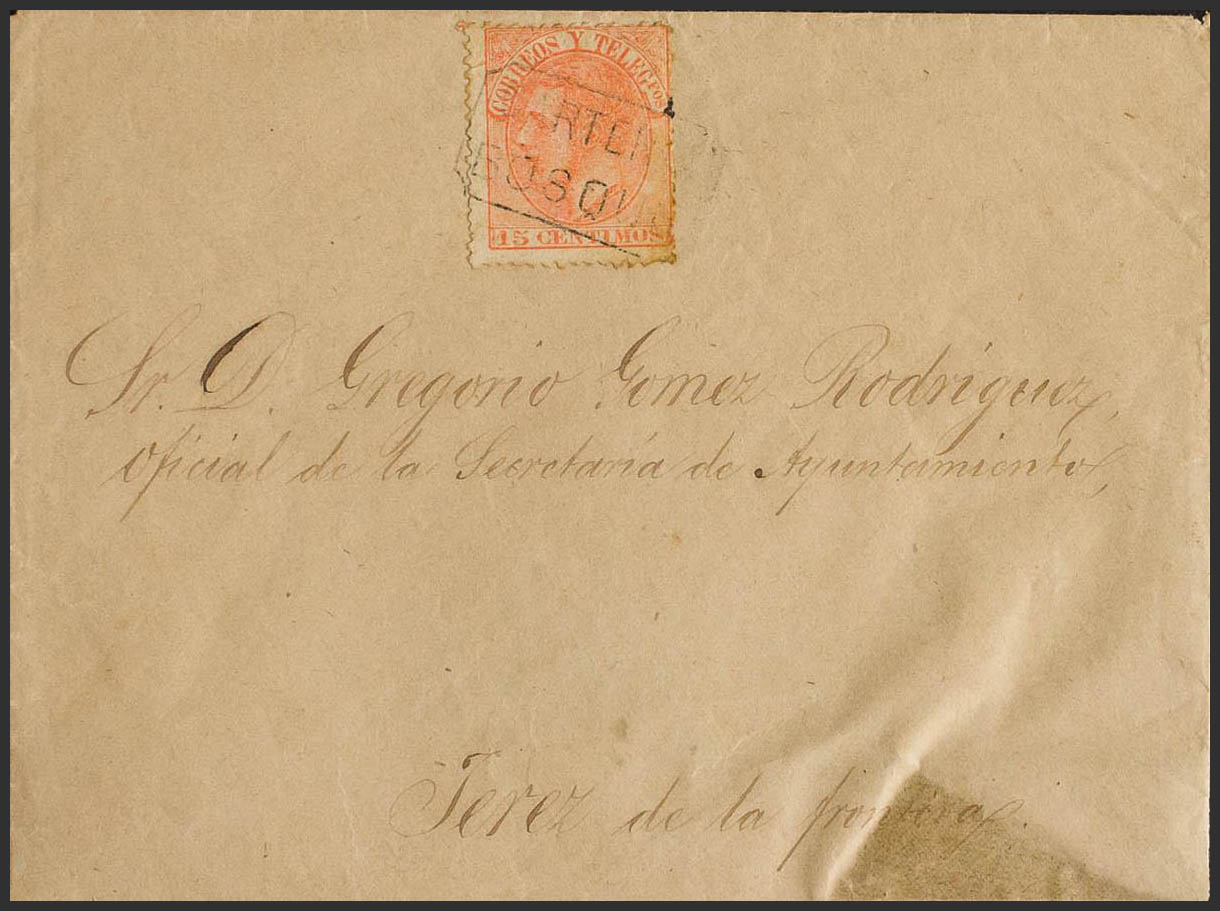 CORREOS Y TELEGFOS
RTE
OSQU
15 CENTIMOS
Sr. D. Gregorio Gomez Rodriguez,
Oficial de la Secretaría de Ayuntamiento,
Jerez de la frontera.